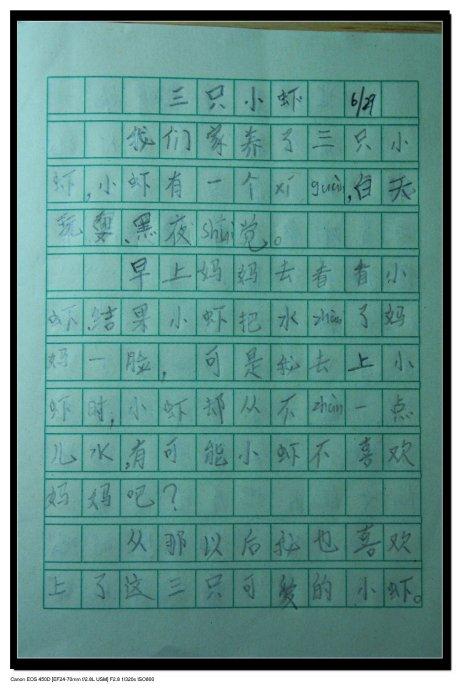 三只小虾 6/29
我们家养了三只小
虾,小虾有一个xí guàn,白天
玩耍、黑夜shuì觉。
早上妈妈去看看小
虾,结果小虾把水zhàn了妈
妈一脸,可是我去上小
虾时,小虾却从不zhàn一点
儿水,有可能小虾不喜欢
妈妈吧?
从那以后我也喜欢
上了这三只可爱的小虾。
Canon EOS 450D [EF24-70mm f/2.8L USM] F2.8 1/320s ISO800